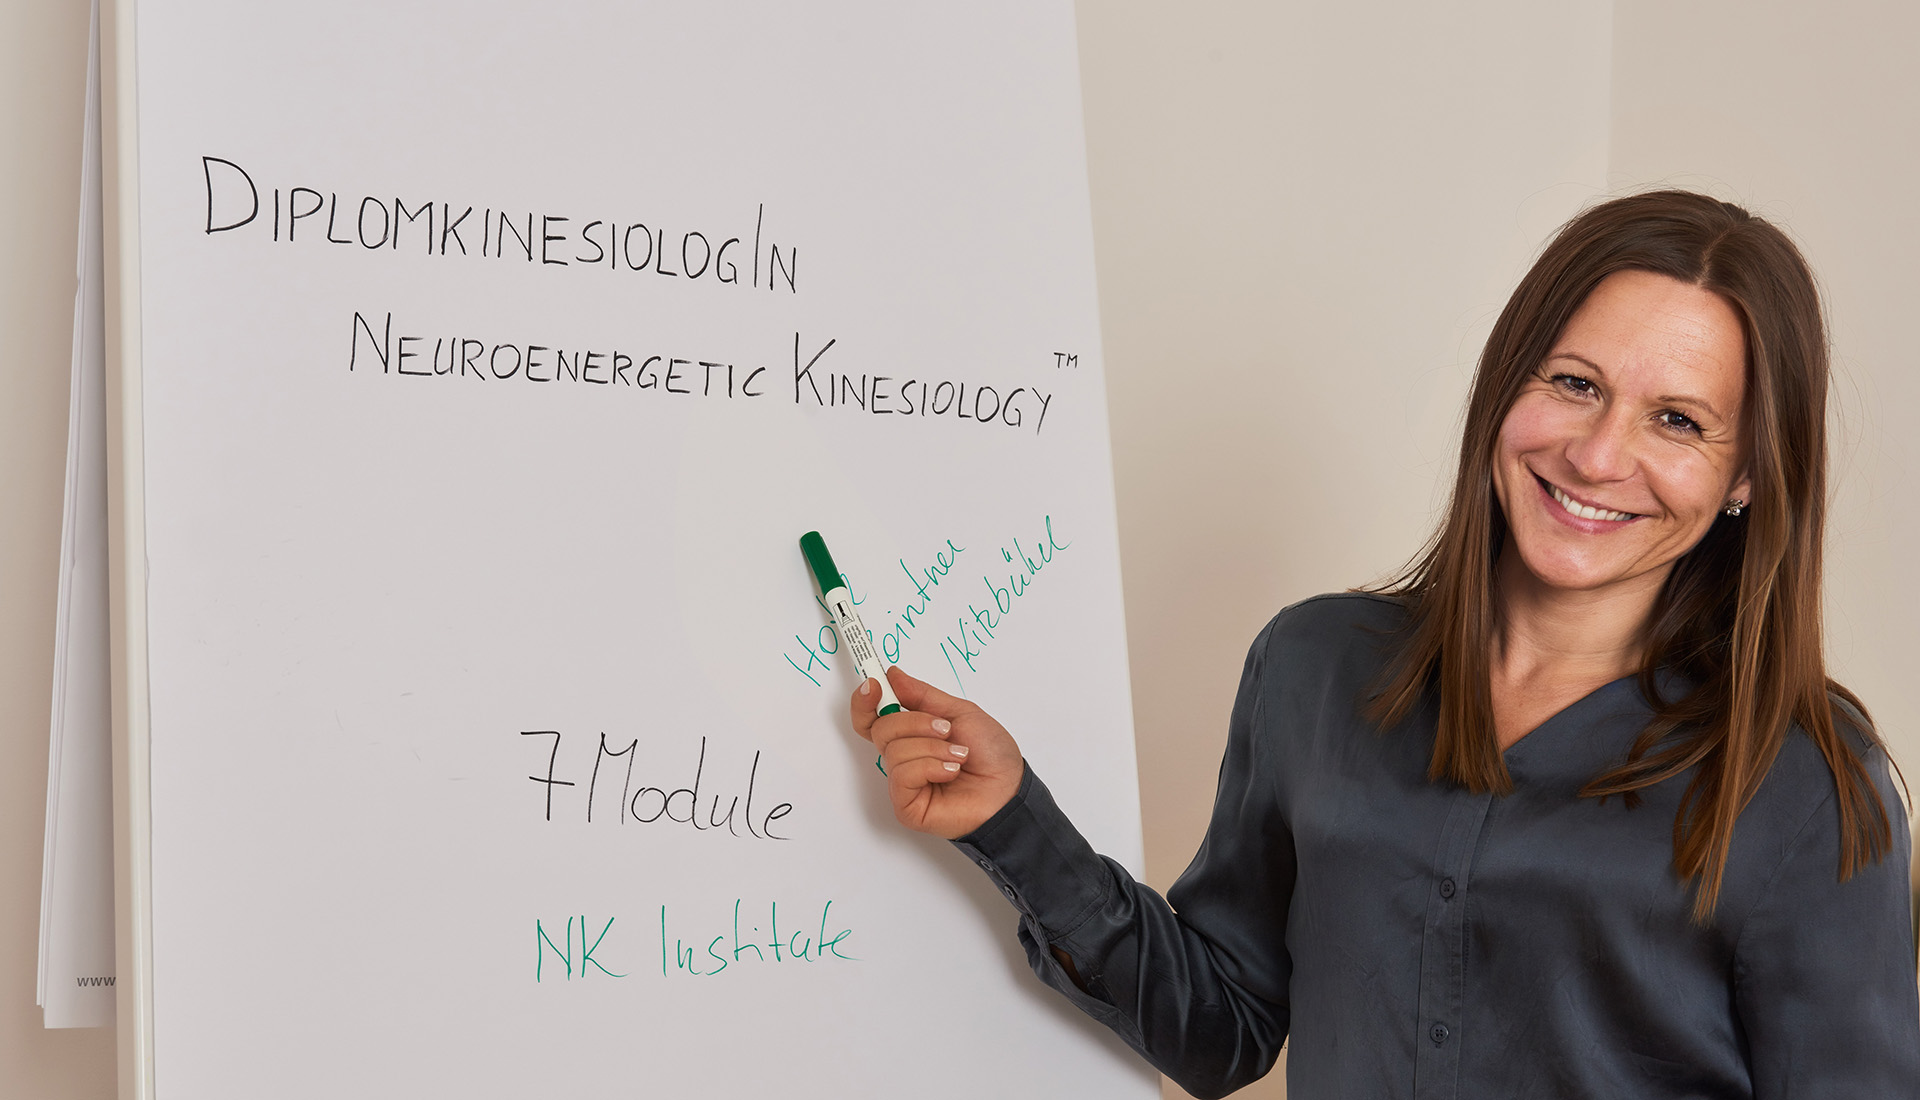 DIPLOMKINESIOLOGIN
NEUROENERGETIC KINESIOLOGY™
/Kitzbühel
7 Module
NK Institute
www